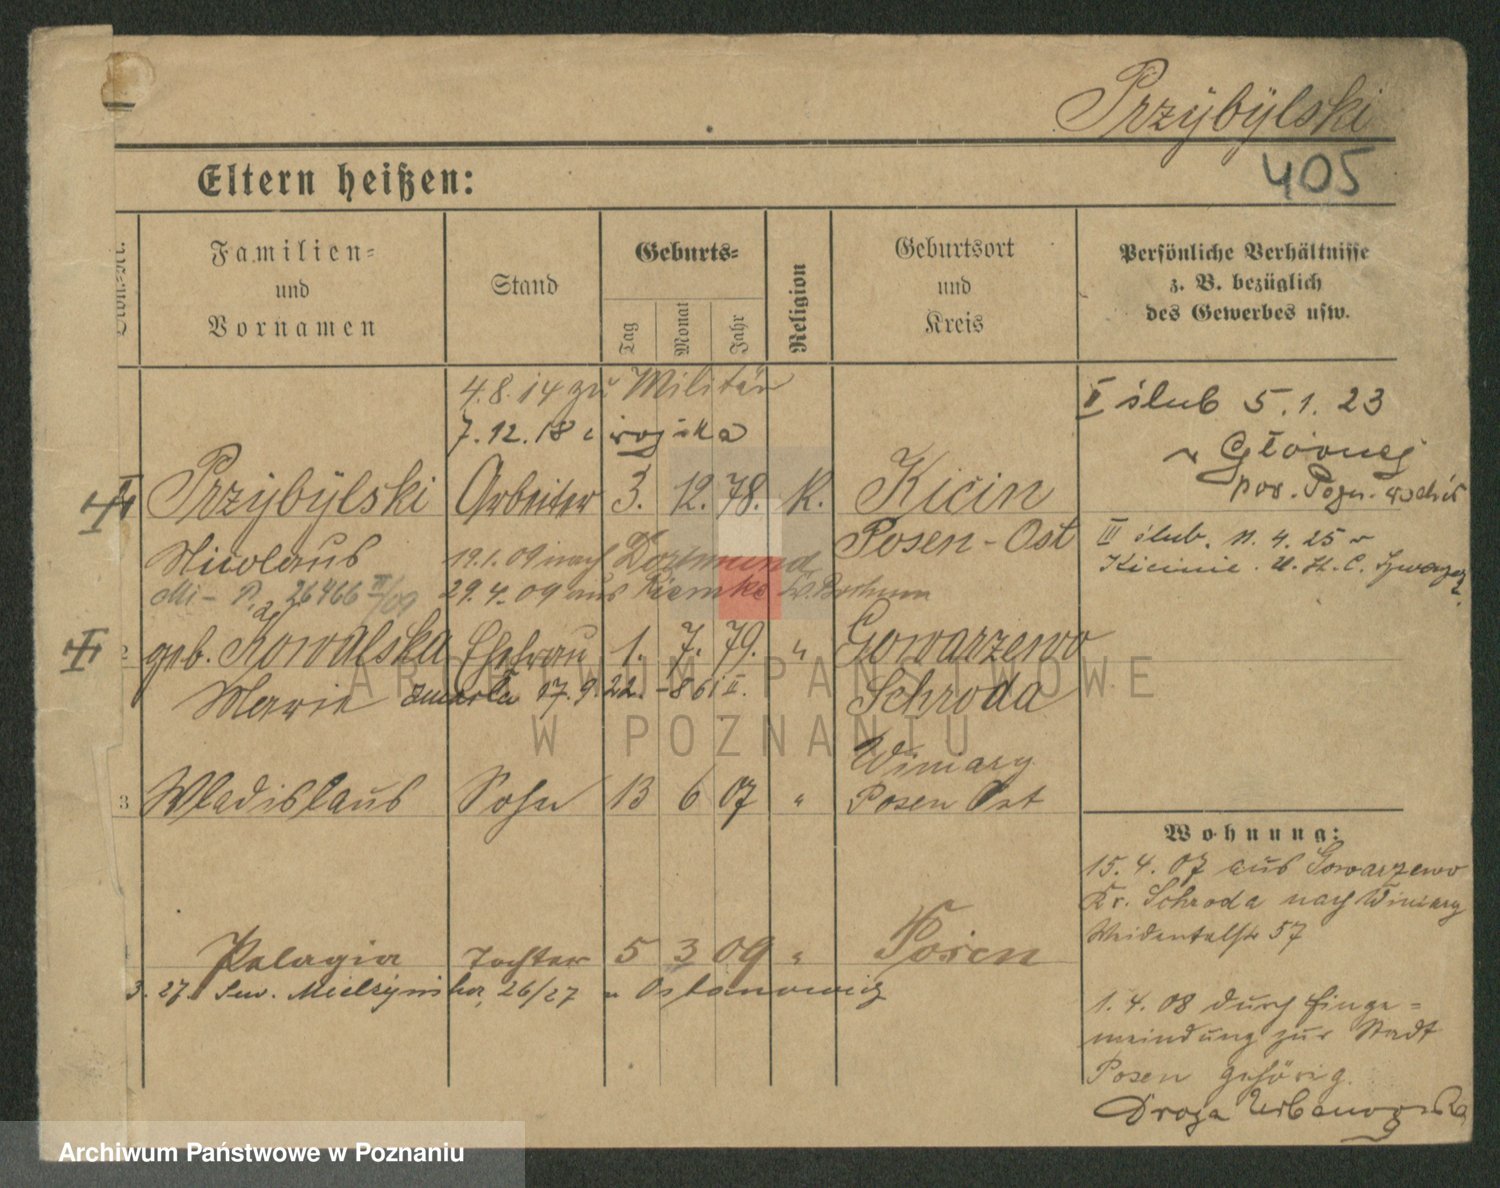 Przÿbÿlski
405
Eltern heißen:
Familien= und Vornamen
Stand
Geburts=
Tag
Monat
Jahr
Religion
Geburtsort und Kreis
Persönliche Verhältnisse
z. B. bezüglich
des Gewerbes usw.
4.8.14 zu Militär
7.12.18 wojska
II ślub 5.1.23
Głównej
pow. Pozn. wschód
Przÿbÿlski Arbeiter 3. 12. 78. K. Kicin
Nicolaus 19.1.09 nach Dortmund Posen-Ost
III ślub. 11.4.25 w
Kicinie.
26466 III/09 29.4.09 aus Riemke Kr. Bochum
2 geb. Kowalska Ehefrau 1. 7. 79. " Gowarzewo
Marie zmarła 17.9.22. -861 II. Schroda
ARCHIWUM PAŃSTWOWE
W POZNANIU
Winiary
3 Wladislaus Sohn 13 6 07 " Posen Ost
Wohnung:
15.4.07 aus Gowarzewo
Kr. Schroda nach Winiary
Weidentalstr 57
Pelagia Tochter 5 3 09 " Posen
3.27. Sew. Mielżyńska, 26/27 u Ostanowicz
1.4.08 durch Einge=
meindung zur Stadt
Posen gehörig.
Droga Urbanowska
Archiwum Państwowe w Poznaniu